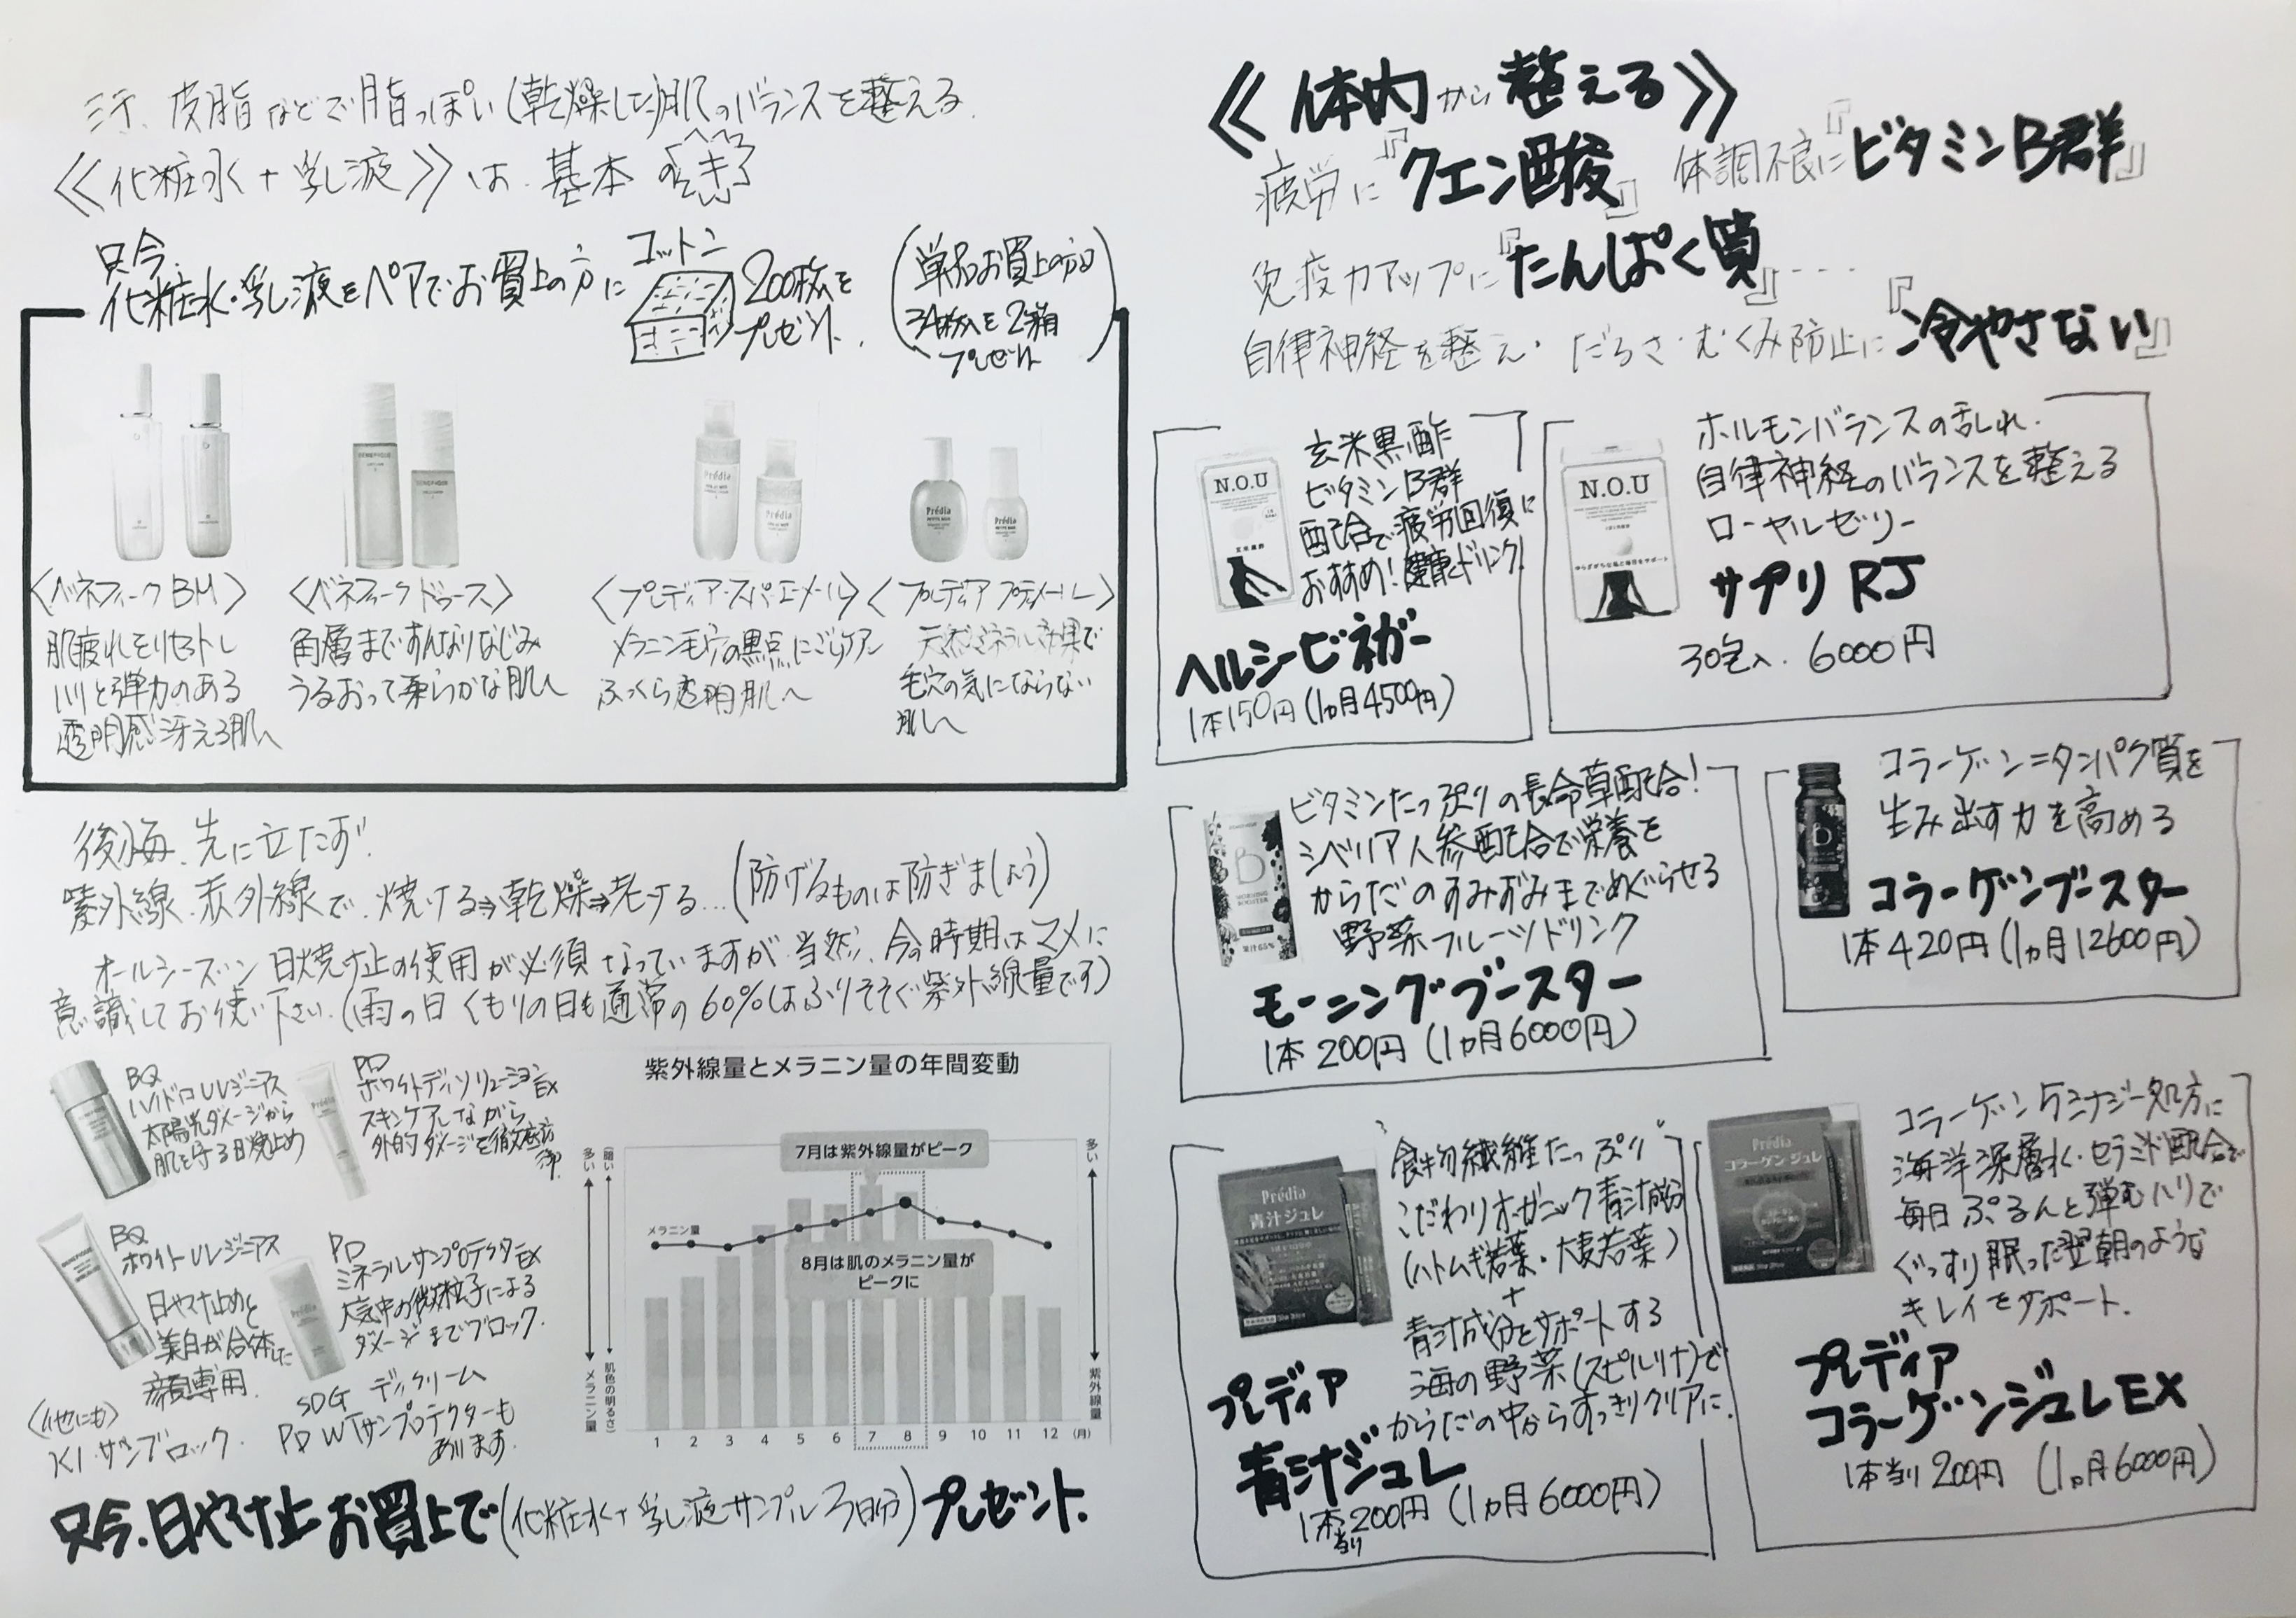 汗、皮脂などで脂っぽい(乾燥した)肌のバランスを整える
《化粧水+乳液》は、基本のき
只今、
化粧水・乳液をペアでお買上の方に
コットン
200枚を
プレゼント、
(単品お買上の方は
34枚入を2箱
プレゼント)
〈ベネフィークBM〉
肌疲れをリセットし
ハリと弾力のある
透明感冴える肌へ
〈ベネフィークドゥース〉
角層まですんなりなじみ
うるおって柔らかな肌へ
〈プレディア・スパ・エ・メール〉
メラニン毛穴の黒点にごりケアー
ふっくら透明肌へ
〈プレディアプティメール〉
天然ミネラル効果で
毛穴の気にならない
肌へ
後悔、先に立たず
紫外線、赤外線で、焼ける⇒乾燥⇒老ける…(防げるものは防ぎましょう)
オールシーズン日焼け止の使用が必須なっていますが、当然、今の時期はマメに
意識してお使い下さい。(雨の日くもりの日も通常の60%はふりそそぐ紫外線量です)
BQ
ハイドロUVジーニアス
太陽光ダメージから
肌を守る日焼止め
PD
ホワイトディソリューションEX
スキンケアしながら
外的ダメージを徹底防御
BQ
ホワイトUVジーニアス
日やけ止めと
美白が合体した
顔専用
PD
ミネラルサンプロテクターEX
大気中の微粒子による
ダメージまでブロック.
〈他にも〉
K1.サンブロック.
SDG デイクリーム
PD WTサンプロテクターも
あります.
紫外線量とメラニン量の年間変動
7月は紫外線量がピーク
メラニン量
8月は肌のメラニン量が
ピークに
多い
メラニン量
(暗い)
肌色の明るさ
多い
紫外線量
1 2 3 4 5 6 7 8 9 10 11 12 (月)
只今.日やけ止お買上で(化粧水+乳液サンプル3日分)プレゼント.
《体内から整える》
疲労に『クエン酸』 体調不良に『ビタミンB群』
免疫力アップに『たんぱく質』----
自律神経を整え・だるさ・むくみ防止に『冷やさない』
N.O.U
玄米黒酢
玄米黒酢
ビタミンB群
配合で疲労回復に
おすすめ!健康ドリンク!
ヘルシービネガー
1本150円(1ヵ月4500円)
N.O.U
ゆらぎがちな私に毎日をサポート
ホルモンバランスの乱れ.
自律神経のバランスを整える
ローヤルゼリー
サプリ RJ
30包入. 6000円
B
MORNING
BOOSTER
果汁65%
ビタミンたっぷりの長命草配合!
シベリア人参配合で栄養を
からだのすみずみまでめぐらせる
野菜フルーツドリンク
モーニングブースター
1本200円(1ヵ月6000円)
B
コラーゲン=タンパク質を
生み出す力を高める
コラーゲンブースター
1本420円(1ヵ月12600円)
Prédia
青汁ジュレ
食物繊維たっぷり
こだわりオーガニック青汁成分
(ハトムギ若葉・大麦若葉)
+
青汁成分をサポートする
海の野菜(スピルリナ)で
からだの中からすっきりクリアに.
プレディア
青汁ジュレ
1本当り200円(1ヵ月6000円)
Prédia
コラーゲンジュレ
コラーゲンシナジー処方に
海洋深層水・セラミド配合で
毎日ぷるんと弾むハリで
ぐっすり眠った翌朝のような
キレイをサポート.
プレディア
コラーゲンジュレEX
1本当り200円(1ヵ月6000円)